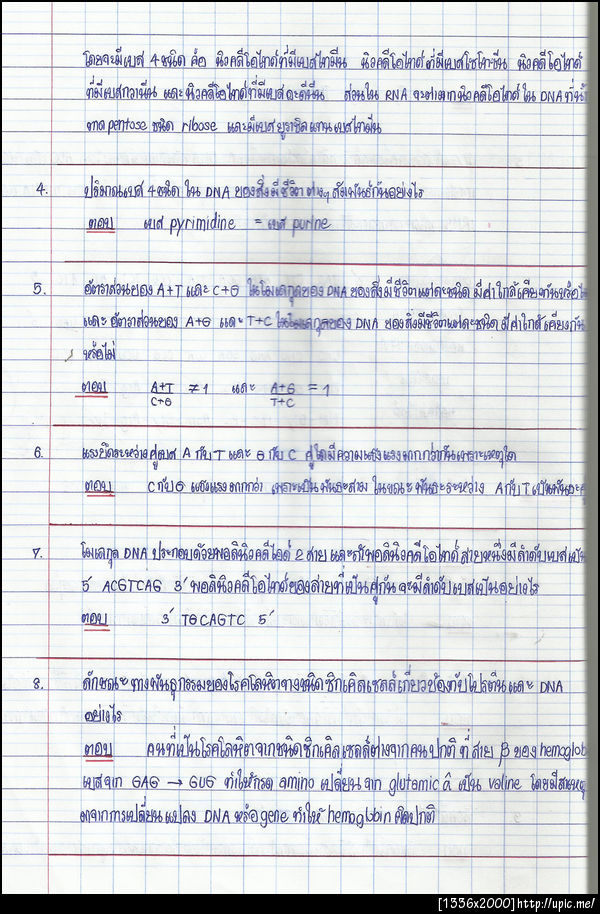 โดยจะมีเบส 4 ชนิด คือ นิวคลีโอไทด์ที่มีเบสไทมีน นิวคลีโอไทด์ที่มีเบสไซโทซีน นิวคลีโอไทด์
ที่มีเบสกวานีน และนิวคลีโอไทด์ที่มีเบสอะดีนีน ส่วนใน RNA จะต่างจากนิวคลีโอไทด์ใน DNA ที่น้ำ
ตาล pentose ชนิด ribose และมีเบสยูราซิลแทนเบสไทมีน
4. ปริมาณเบส 4 ชนิด ใน DNA ของสิ่งมีชีวิตต่างๆ สัมพันธ์กันอย่างไร
ตอบ เบส pyrimidine = เบส purine
5. อัตราส่วนของ A+T และ C+G ในโมเลกุลของ DNA ของสิ่งมีชีวิตแต่ละชนิด มีค่าใกล้เคียงกันหรือไม่
และ อัตราส่วนของ A+G และ T+C ในโมเลกุลของ DNA ของสิ่งมีชีวิตแต่ละชนิด มีค่าใกล้เคียงกัน
หรือไม่
ตอบ A+T/C+G ≠ 1 และ A+G/T+C = 1
6. แรงยึดระหว่างคู่เบส A กับ T และ G กับ C คู่ใดมีความแข็งแรงมากกว่ากันเพราะเหตุใด
ตอบ C กับ G แข็งแรงมากกว่า เพราะเป็นพันธะสาม ในขณะพันธะระหว่าง A กับ T เป็นพันธะคู่
7. โมเลกุล DNA ประกอบด้วยพอลินิวคลีไอด์ 2 สาย และถ้าพอลินิวคลีโอไทด์สายหนึ่งมีลำดับเบสเป็น
5′ ACGTCAG 3′ พอลินิวคลีโอไทด์ของสายที่เป็นคู่กัน จะมีลำดับเบสเป็นอย่างไร
ตอบ 3′ TGCAGTC 5′
8. ลักษณะทางพันธุกรรมของโรคโลหิตจางชนิดซิกเคิลเซลล์เกี่ยวข้องกับโปรตีนและ DNA
อย่างไร
ตอบ คนที่เป็นโรคโลหิตจางชนิดซิกเคิลเซลล์ต่างจากคนปกติ ที่สาย β ของ hemoglob
เบสจาก GAG → GUG ทำให้กรด amino เปลี่ยนจาก glutamic เป็น valine โดยมีสาเหตุ
มาจากการเปลี่ยนแปลง DNA หรือ gene ทำให้ hemoglobin ผิดปกติ
[1336x2000]http://upic.me/